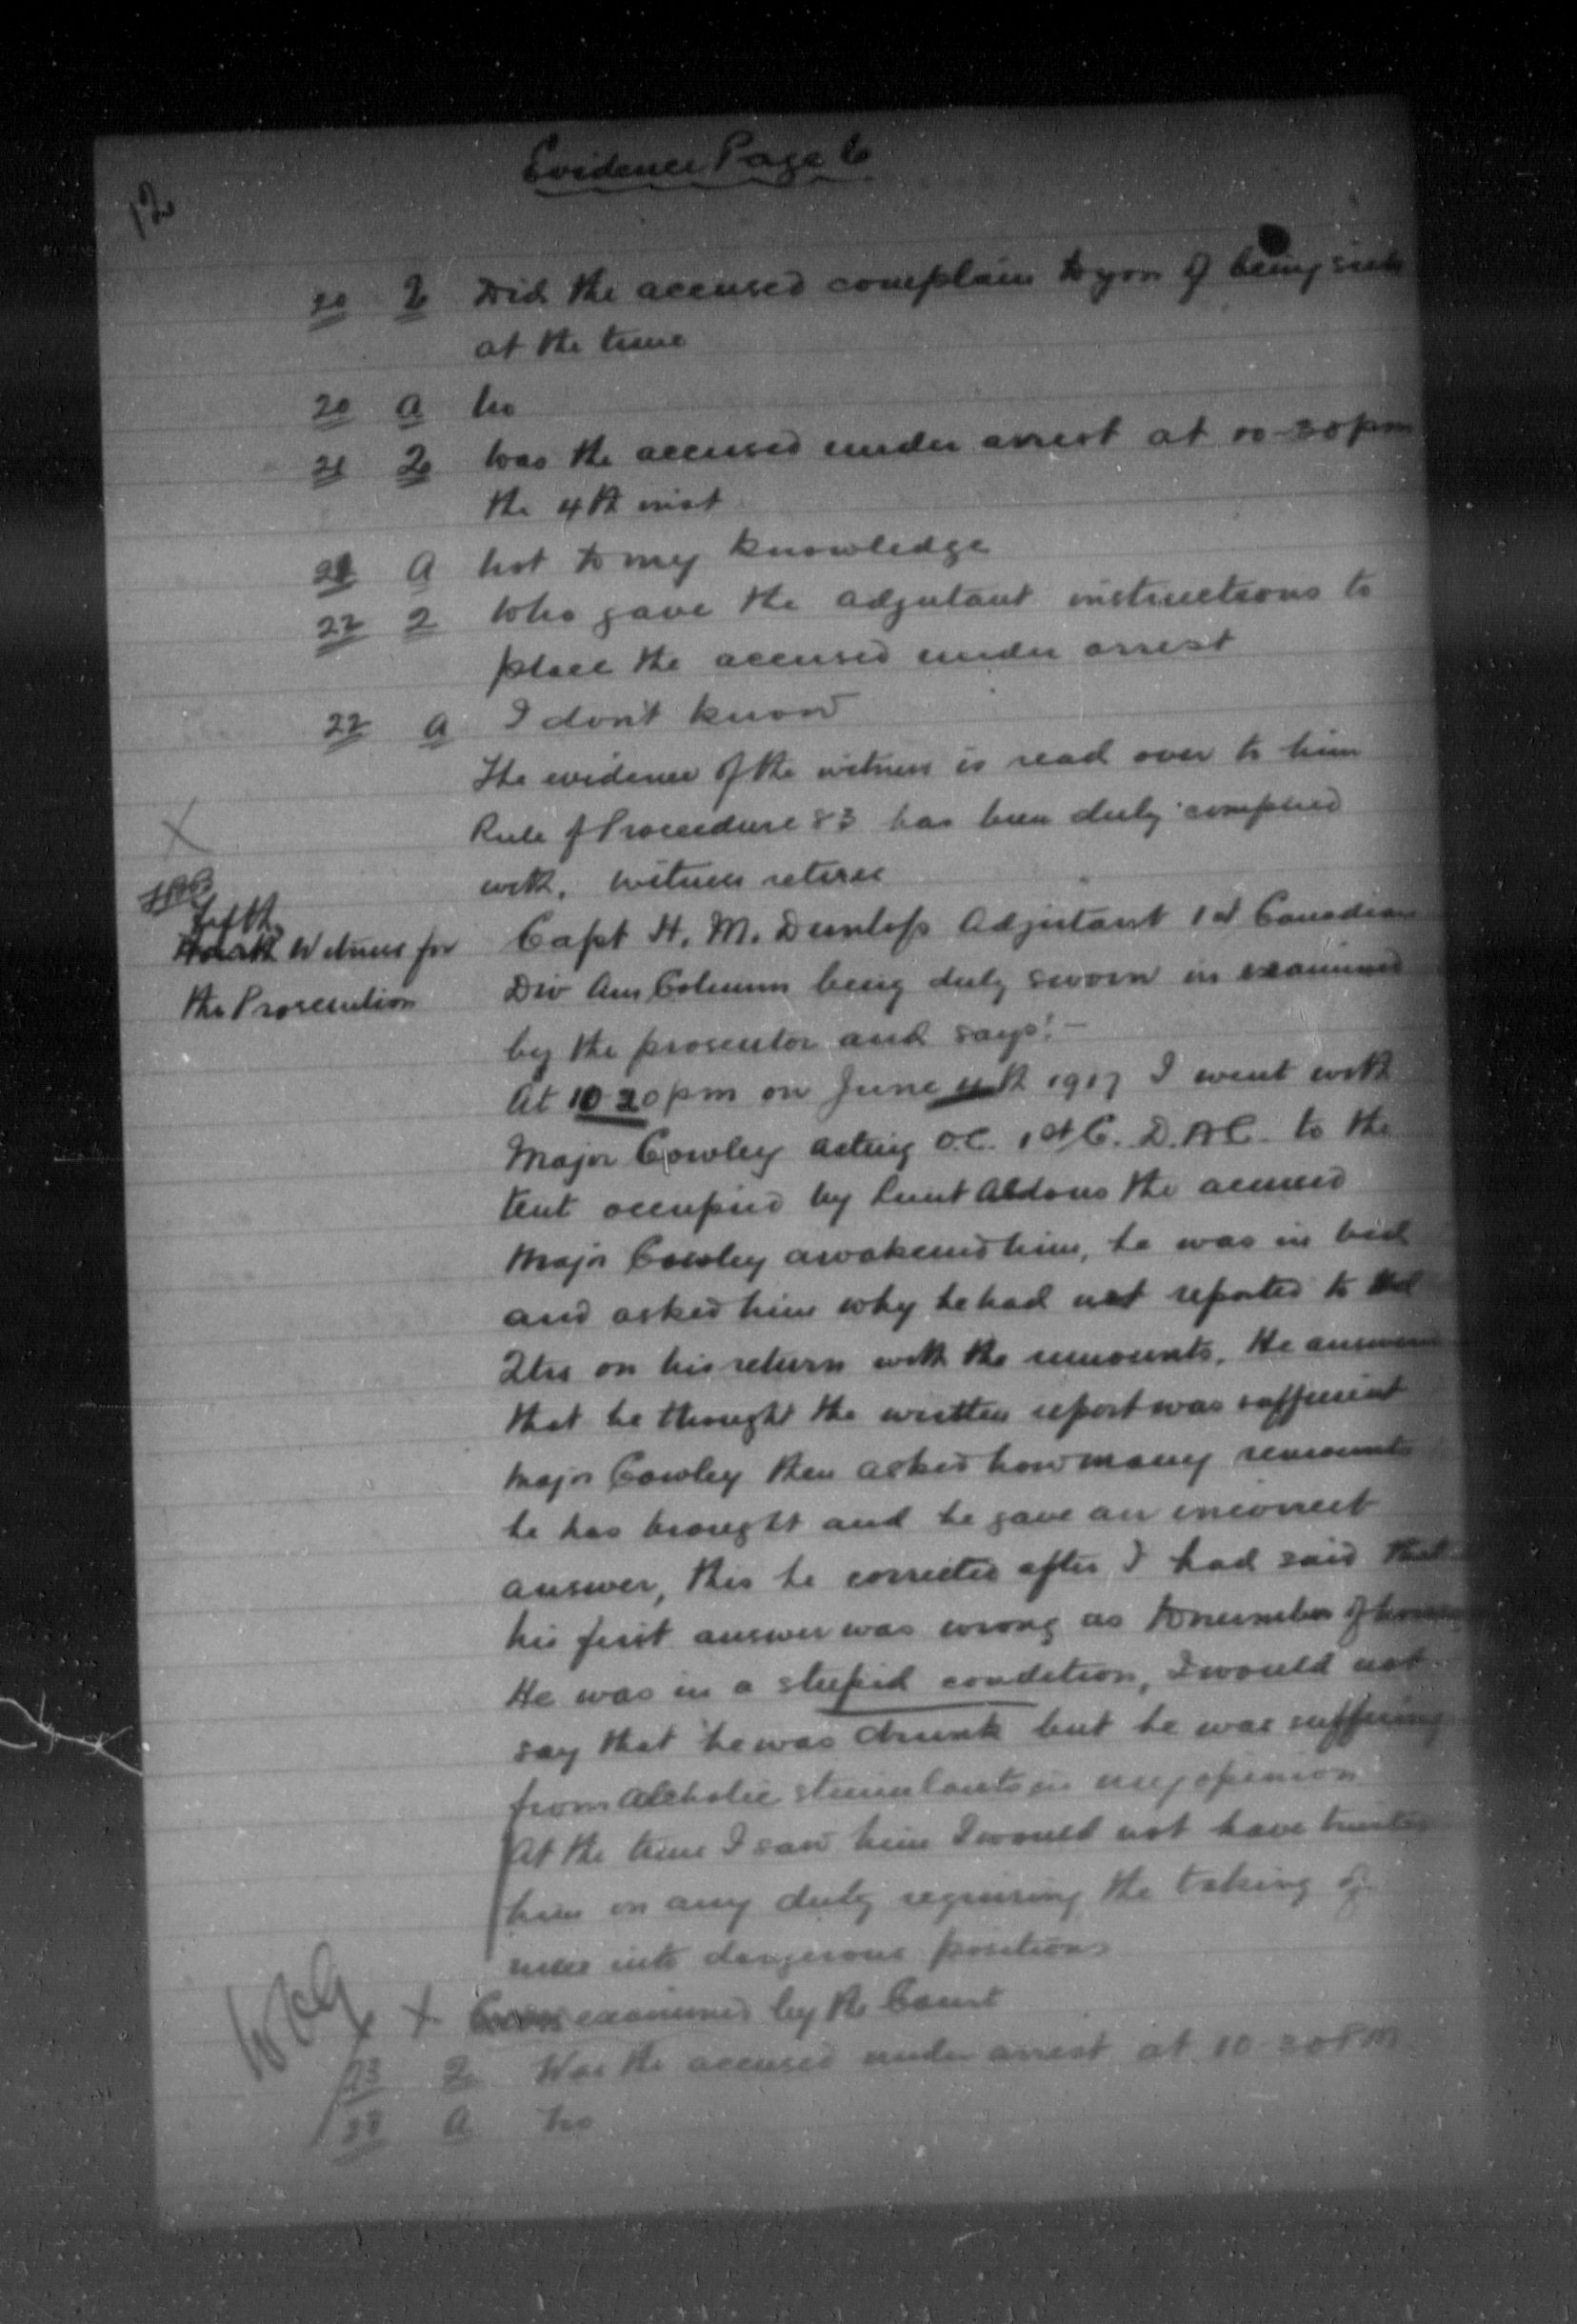 Evidence Page 6
12
20 Q Did the accused complain to you of being sick
at the time
20 A No
21 Q Was the accused under arrest at 10-30 pm
the 4th inst
21 A Not to my knowledge
22 Q Who gave the adjutant instructions to
place the accused under arrest
22 A I don't know
The evidence of the witness is read over to him
Rule of Procedure 83 has been duly complied
with. Witness retires
Fifth
Fourth Witness for
the Prosecution
Capt H. M. Dunlop Adjutant 1st Canadian
Div Am Column being duly sworn is examined
by the prosecutor and says:-
At 10 20 pm on June 4th 1917 I went with
Major Cowley acting O.C. 1st C. D.A.C. to the
tent occupied by Lieut Aldous the accused
Major Cowley awakened him, he was in bed
and asked him why he had not reported to Hd
Qtrs on his return with the remounts. He answered
that he thought the written report was sufficient
Major Cowley then asked how many remounts
he has brought and he gave an incorrect
answer, this he corrected after I had said that
his first answer was wrong as to number of horses
He was in a stupid condition, I would not
say that he was drunk but he was suffering
from alcholic stimulants in my opinion
At the time I saw him I would not have trusted
him on any duty requiring the taking of
men into dangerous positions
X Cross examined by the Court
23 Q Was the accused under arrest at 10-30 PM
23 A No